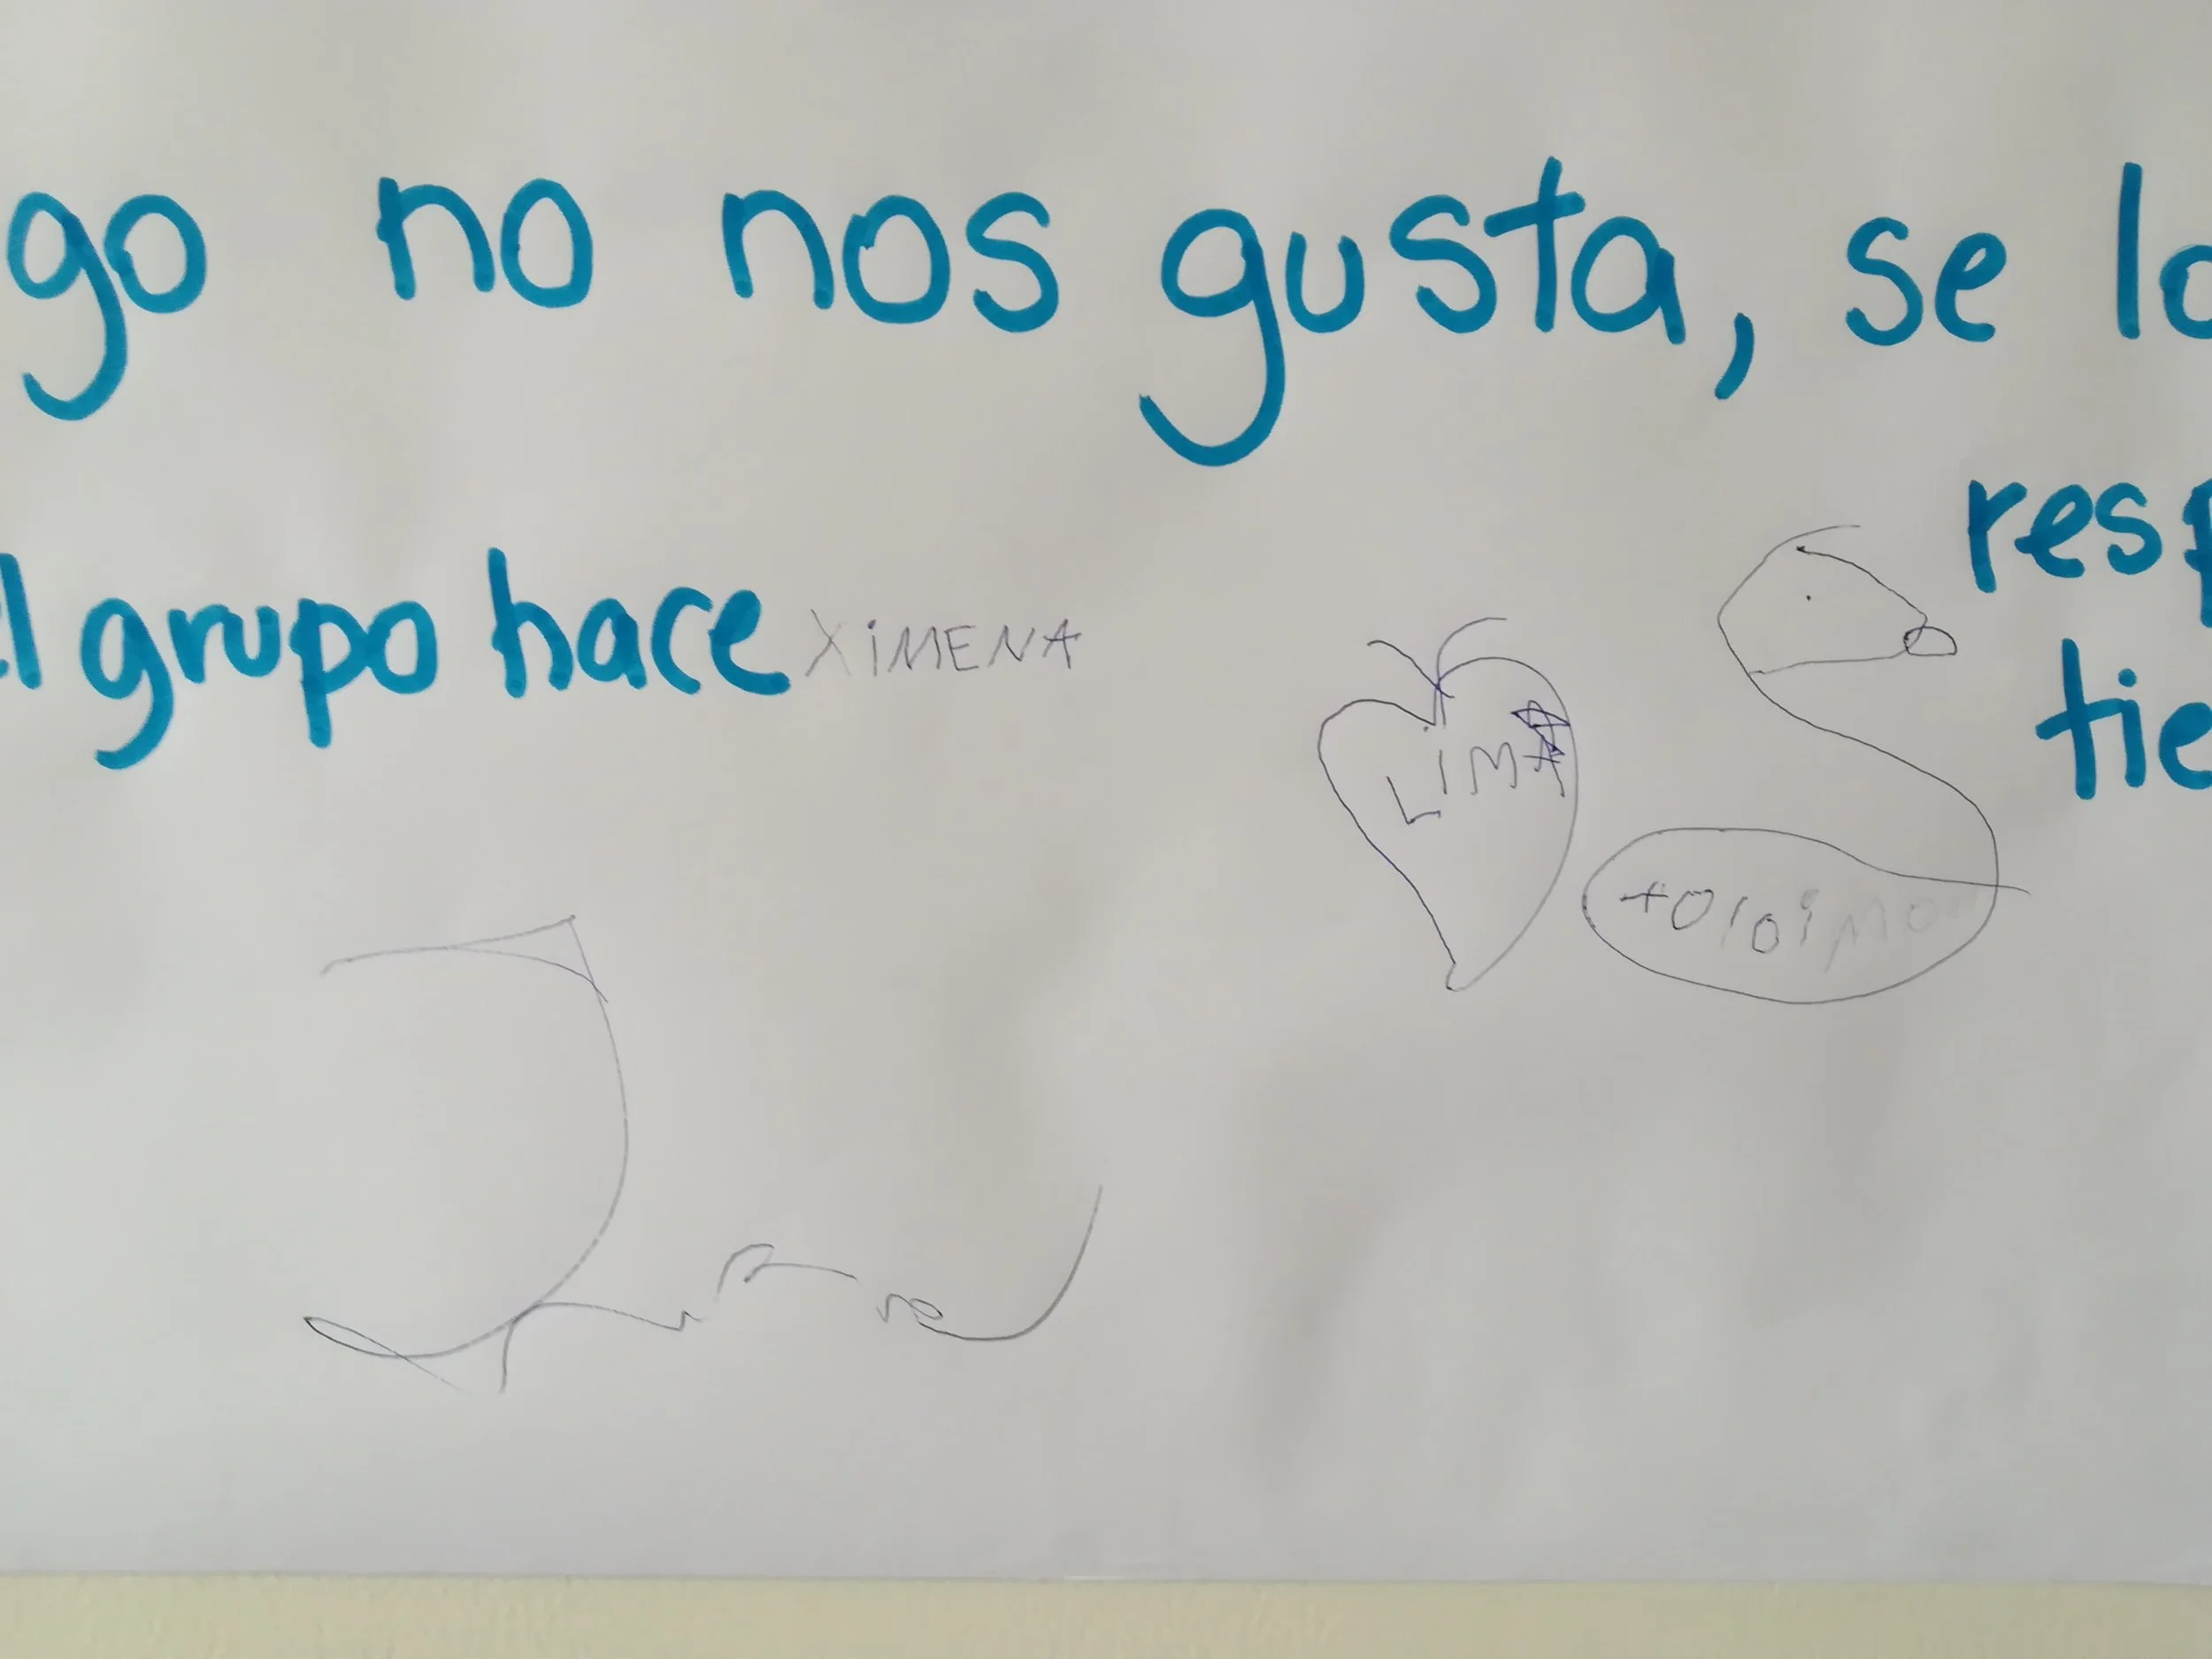 go no nos gusta, se lo
resp
l grupo hace XIMENA
tie
LIMA